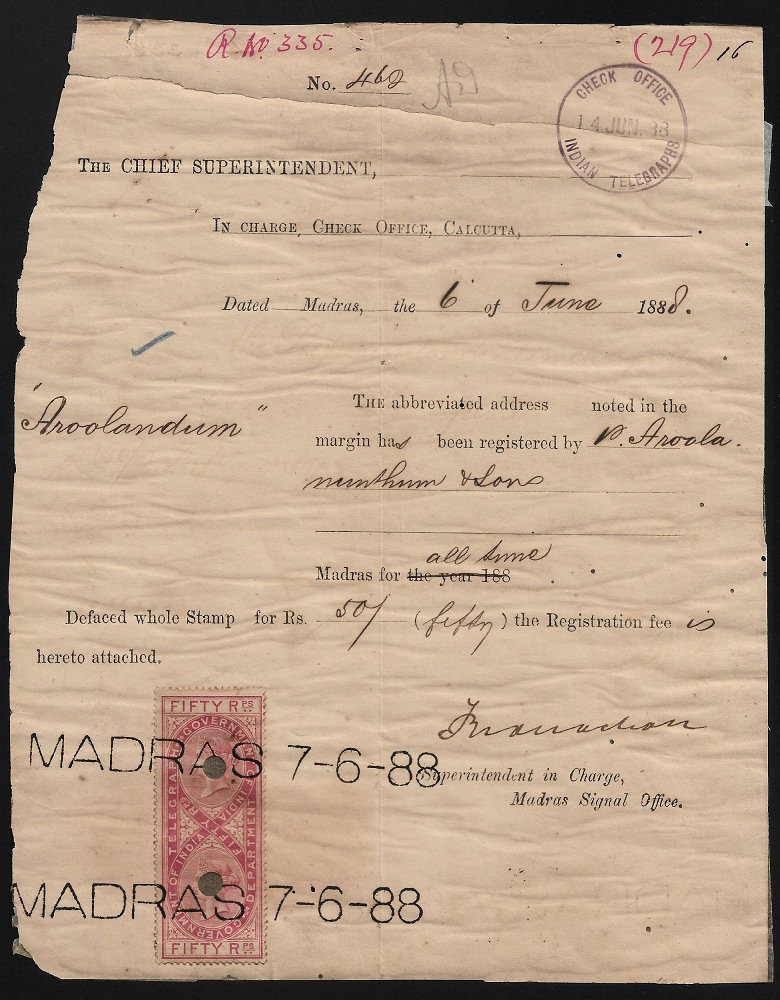 R No. 335.
(219) 16
No. 462
CHECK OFFICE
14 JUN. 88
INDIAN TELEGRAPHS
THE CHIEF SUPERINTENDENT,
IN CHARGE, CHECK OFFICE, CALCUTTA,
Dated Madras, the 6 of June 1888.
"Aroolandum"
THE abbreviated address noted in the
margin has been registered by P. Aroola.
nunthum & Sons
all time
Madras for the year 188
Defaced whole Stamp for Rs. 50/ (fifty) the Registration fee is
hereto attached.
FIFTY RPS
GOVERNMENT OF INDIA
TELEGRAPH
DEPARTMENT
GOVERNMENT OF INDIA
FIFTY RPS
MADRAS 7-6-88
Superintendent in Charge,
Madras Signal Office.
MADRAS 7-6-88